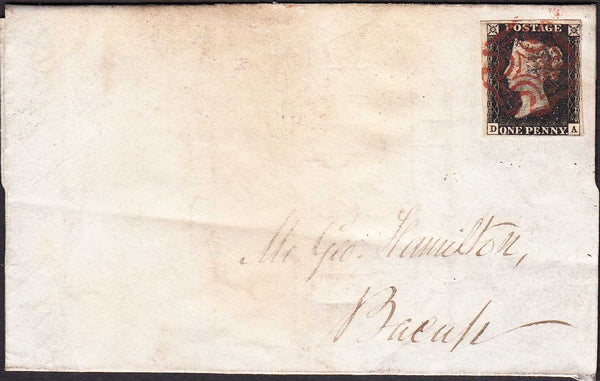 POSTAGE
D ONE PENNY A
Mr Geo. Hamilton,
Bacup